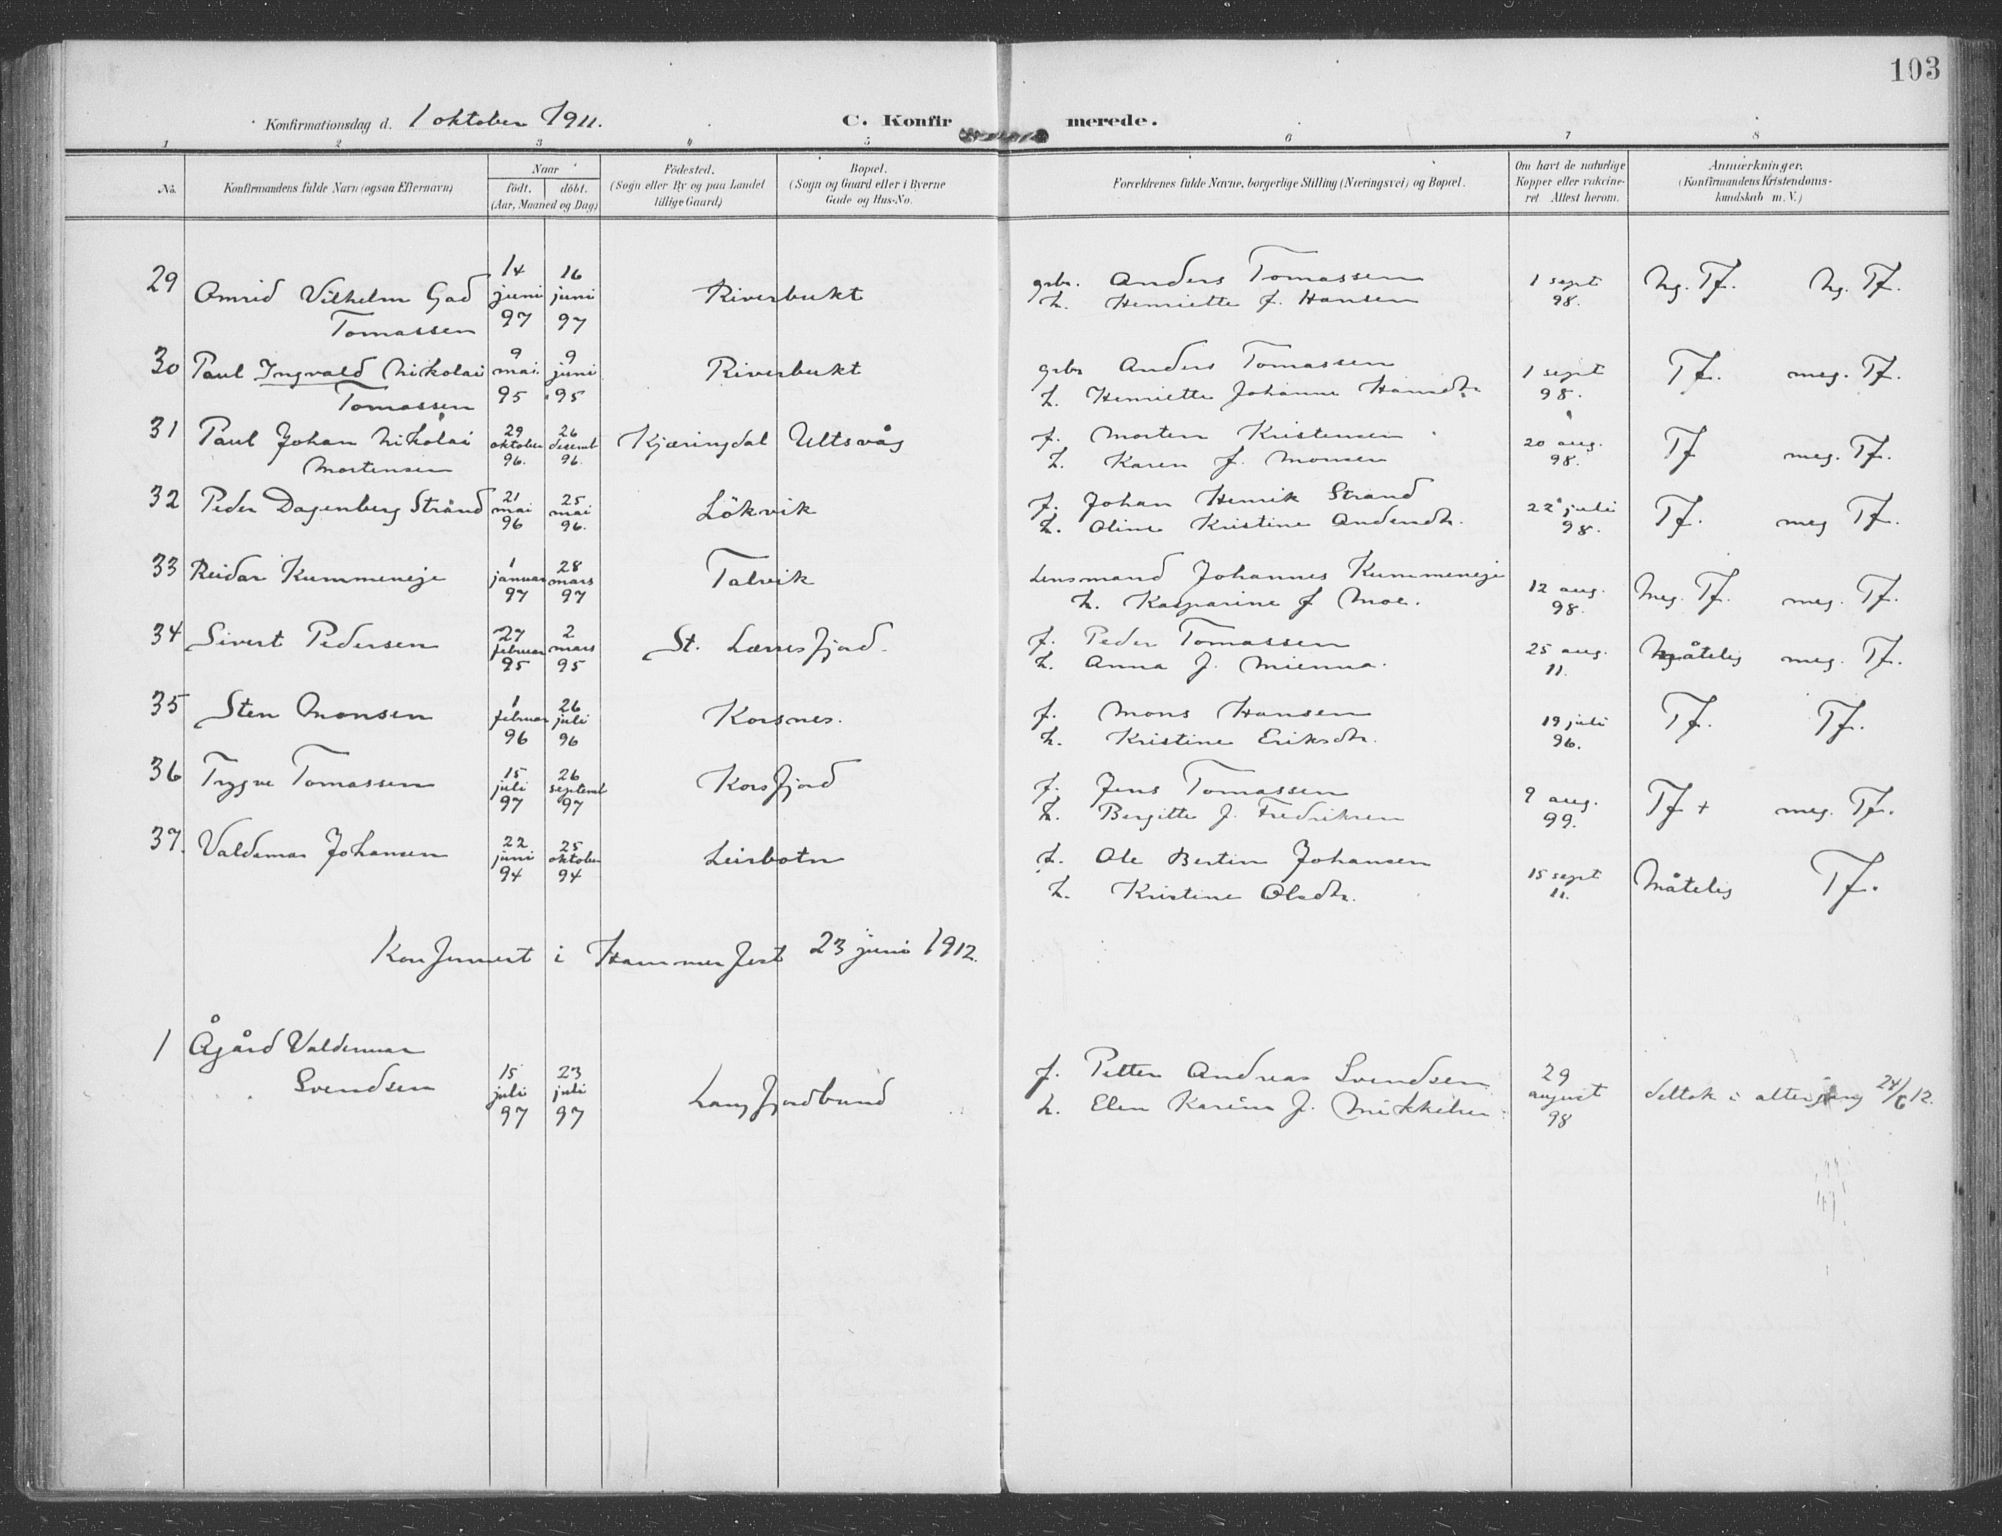 103
Konfirmationsdag d. 1 oktober 1911. C. Konfirmerede.
1 2 3 4 5 6 7 8
No. Konfirmandens fulde Navn (ogsaa Efternavn) Naar födt. döbt. (Aar, Maaned og Dag) Födested. (Sogn eller By og paa Landet tillige Gaard) Bopæl. (Sogn og Gaard eller i Byerne Gade og Hus-No. Forældrenes fulde Navne, borgerlige Stilling (Næringsvei) og Bopæl. Om havt de naturlige Kopper eller vakcineret Attest herom. Anmærkninger. (Konfirmandens Kristendomskundskab m. V.)
29 Amrid Vilhelm Gad Tomassen 14 juni 97 16 juni 97 Riverbukt gbr. Anders Tomassen 1 sept 98. Ng. Tf. Ng. Tf.
h. Henriette f. Hansen
30 Paul Ingvald Nikolai Tomassen 9 mai 95 9 juni 95 Riverbukt gbr Anders Tomassen 1 sept 98. Tf. meg. Tf.
h. Henriette Johanne Hansdtr.
31 Paul Johan Nikolai Mortensen 29 oktober 96. 26 desemb 96. Kjæringdal Ultsvåg f. Morten Kristensen 20 aug. 98. Tf meg. Tf.
h. Karen f. Monsen
32 Peder Dagenberg Strand 21 mai 96 25 mai 96. Lökvik f. Johan Henrik Strand 22 juli 98. Tf. meg Tf.
h. Oline Kristine Andersdtr.
33 Reidar Kummeneje 1 januar 97 28 mars 97 Talvik Lensmand Johannes Kummeneje 12 aug. 98. Meg. Tf. meg. Tf.
h. Kasparine f Moe.
34 Sivert Pedersen 27 februar 95 2 mars 95 St. Lerresfjord. f. Peder Tomassen 25 aug. 11. Måtelig meg. Tf.
h. Anna f. Mienna.
35 Sten Monsen 1 februar 96 26 juli 96 Korsnes. f. Mons Hansen 19 juli 96. Tf. Tf.
h. Kristine Eriksdtr.
36 Trygve Tomassen 15 juli 97 26 septemb 97 Korsfjord f. Jens Tomassen 9 aug. 99. Tf + meg. Tf.
h. Bergitte f. Fredriksen
37. Valdemar Johansen 22 juni 94 25 oktober 94 Leirbotn f. Ole Bertin Johansen 15 sept 11. Måtelig Tf.
h. Kristine Olsdtr.
Konfirmert i Hammerfest 23 juni 1912.
1 Ågård Valdemar Svendsen 15 juli 97 23 juli 97 Langfjordbund f. Petter Andreas Svendsen 29 august 98 deltok i altergang 24/6 12.
h. Elen Karine f. Mikkelsen